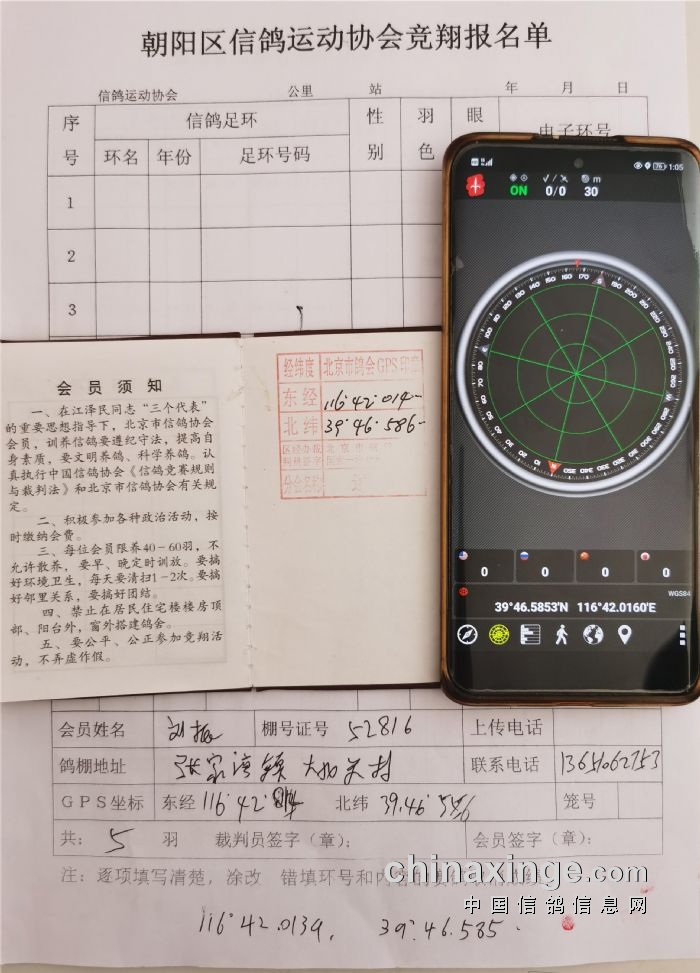 朝阳区信鸽运动协会竞翔报名单
信鸽运动协会 公里 站 年 月 日
序号 信鸽足环 性别 羽色 眼 电子环号
环名 年份 足环号码
1
2
3
76 1:05
ON 0/0 m 30
0 0 0 0
WGS84
39°46.5853'N 116°42.0160'E
会员须知
一、在江泽民同志“三个代表”
的重要思想指导下，北京市信鸽协会
会员，训养信鸽要遵纪守法，提高自
身素质，要文明养鸽、科学养鸽。认
真执行中国信鸽协会《信鸽竞赛规则
与裁判法》和北京市信鸽协会有关规
定。
二、积极参加各种政治活动，按
时缴纳会费。
三、每位会员限养40－60羽，不
允许散养，要早、晚定时训放。要搞
好环境卫生，每天要清扫1－2次。要搞
好邻里关系，要搞好团结。
四、禁止在居民住宅楼楼房顶
部、阳台外，窗外搭建鸽舍。
五、要公平、公正参加竞翔活
动，不弄虚作假。
经纬度 北京市鸽会GPS印章
东经 116°42.014
北纬 39°46.586
会员姓名 刘振 棚号证号 52816 上传电话
鸽棚地址 张家湾镇 联系电话 13651062753
GPS坐标 东经 116°42 北纬 39.46 586 笼号
共： 5 羽 裁判员签字（章）： 会员签字（章）：
注：逐项填写清楚，涂改 错填环号和内容
chinaxinge.com
中国信鸽信息网
116°42.0139, 39°.46.585